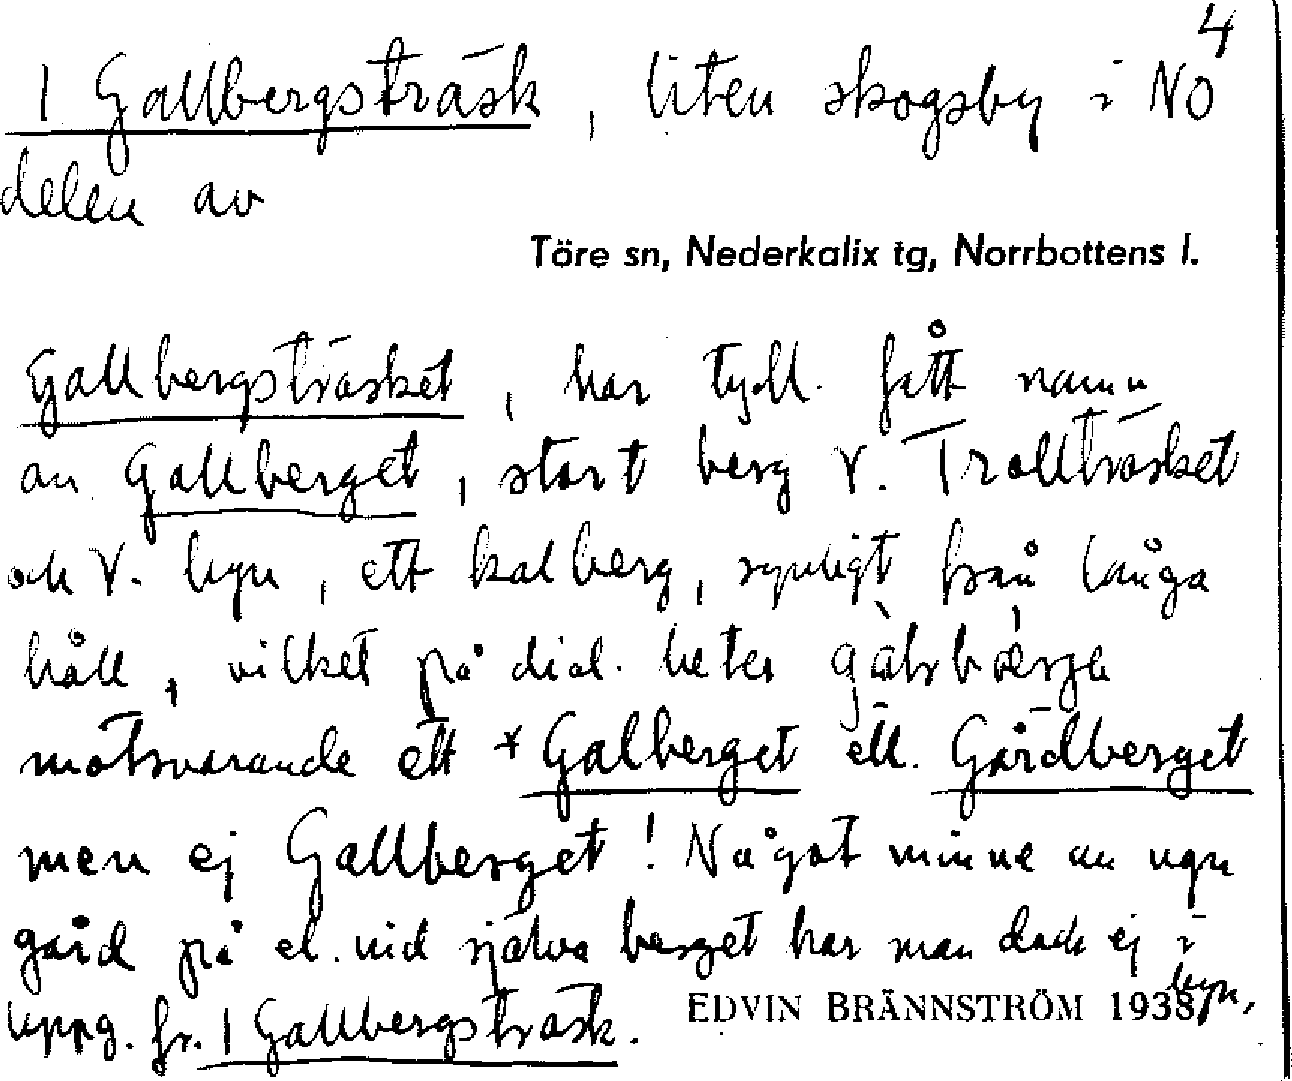 4
1 Gallbergsträsk, liten skogsby i NO
delen av
Töre sn, Nederkalix tg, Norrbottens l.
Gallbergsträsket, har tydl. fått namn
av Gallberget, stort berg V. Trollträsket
och V. byn, ett kalberg, synligt från långa
håll, vilket på dial. heter
motsvarande ett *Galberget ell. Gårdberget
men ej Gallberget! Något minne av ngn
gård på el. vid själva berget har man dock ej i
byn,
Uppg. fr. 1 Gallbergsträsk.
EDVIN BRÄNNSTRÖM 1938